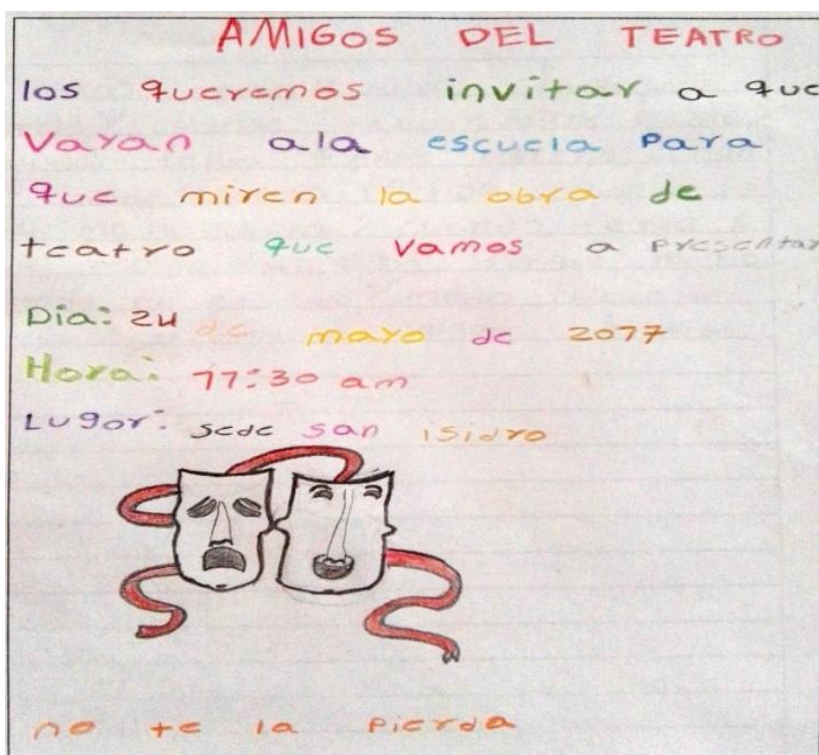 AMIGOS DEL TEATRO
los queremos invitar a que
Vayan ala escuela Para
que miren la obra de
teatro que Vamos a Presentar
Dia: 24 de mayo de 2011
Hora: 11:30 am
Lugar: sede san isidro
no te la Pierda